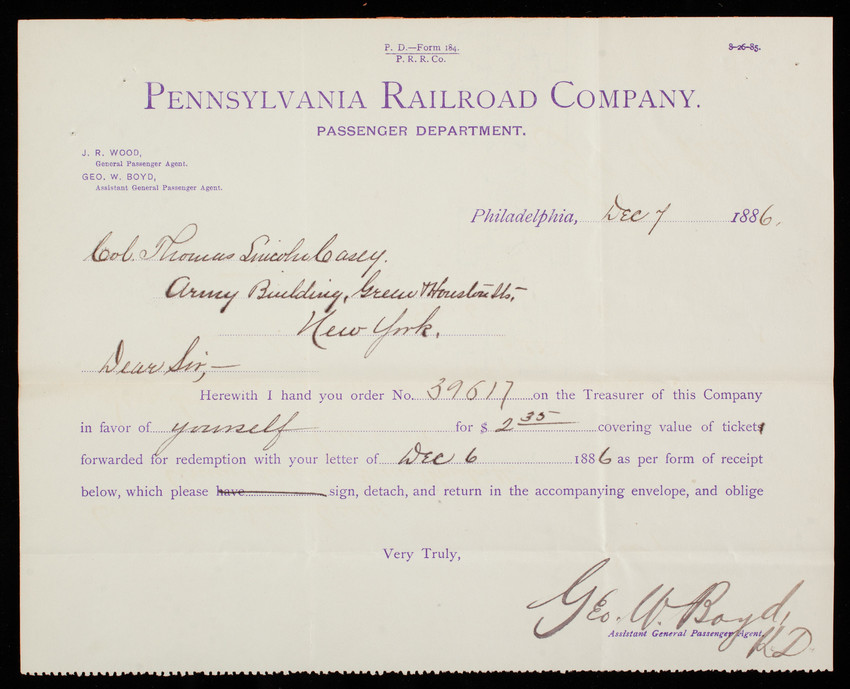 P. D.—Form 184.
P. R. R. Co.
8-26-85.
PENNSYLVANIA RAILROAD COMPANY.
PASSENGER DEPARTMENT.
J. R. WOOD,
General Passenger Agent.
GEO. W. BOYD,
Assistant General Passenger Agent.
Philadelphia, Dec 7 1886.
Col. Thomas Lincoln Casey.
Army Building, Green & Houston Sts,-
New York.
Dear Sir,—
Herewith I hand you order No. 39617 on the Treasurer of this Company
in favor of yourself for $ 2 35 covering value of ticket
forwarded for redemption with your letter of Dec 6 1886 as per form of receipt
below, which please have sign, detach, and return in the accompanying envelope, and oblige
Very Truly,
Geo. W. Boyd,
Assistant General Passenger Agent.
K.D.